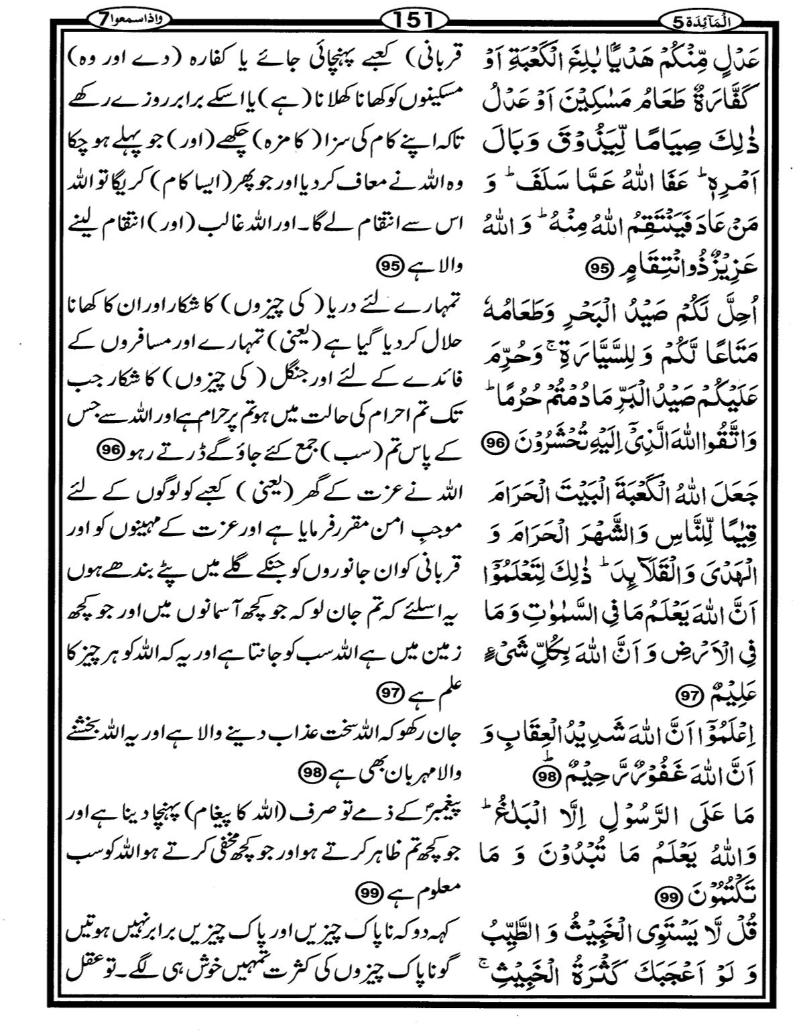 المآئدة 5
151
واذاسمعوا 7
عَدۡلٍ مِّنۡكُمۡ هَدۡيًاۢ بٰلِغَ الۡكَعۡبَةِ اَوۡ
كَفَّارَةٌ طَعَامُ مَسٰكِيۡنَ اَوۡ عَدۡلُ
ذٰلِكَ صِيَامًا لِّيَذُوۡقَ وَبَالَ
اَمۡرِهٖ‌ ؕ عَفَا اللّٰهُ عَمَّا سَلَفَ‌ ؕ وَ
مَنۡ عَادَ فَيَنۡتَقِمُ اللّٰهُ مِنۡهُ‌ ؕ وَ اللّٰهُ
عَزِيۡزٌ ذُو انْتِقَامٍ 95
اُحِلَّ لَـكُمۡ صَيۡدُ الۡبَحۡرِ وَطَعَامُهٗ
مَتَاعًا لَّـكُمۡ وَلِلسَّيَّارَةِ‌ ۚ وَحُرِّمَ
عَلَيۡكُمۡ صَيۡدُ الۡبَـرِّ مَا دُمۡتُمۡ حُرُمًا‌ ؕ
وَاتَّقُوا اللّٰهَ الَّذِىۡۤ اِلَيۡهِ تُحۡشَرُوۡنَ 96
جَعَلَ اللّٰهُ الۡـكَعۡبَةَ الۡبَيۡتَ الۡحَـرَامَ
قِيٰمًا لِّـلنَّاسِ وَالشَّهۡرَ الۡحَـرَامَ وَ
الۡهَدۡىَ وَالۡقَلَاۤٮِٕدَ‌ ؕ ذٰ لِكَ لِتَعۡلَمُوۡۤا
اَنَّ اللّٰهَ يَعۡلَمُ مَا فِى السَّمٰوٰتِ وَمَا
فِى الۡاَرۡضِ وَاَنَّ اللّٰهَ بِكُلِّ شَىۡءٍ
عَلِيۡمٌ 97
اِعۡلَمُوۡۤا اَنَّ اللّٰهَ شَدِيۡدُ الۡعِقَابِ وَ
اَنَّ اللّٰهَ غَفُوۡرٌ رَّحِيۡمٌ ؕ 98
مَا عَلَى الرَّسُوۡلِ اِلَّا الۡبَلٰغُ‌ ؕ
وَاللّٰهُ يَعۡلَمُ مَا تُبۡدُوۡنَ وَ مَا
تَكۡتُمُوۡنَ 99
قُلْ لَّا يَسۡتَوِى الۡخَبِيۡثُ وَ الطَّيِّبُ
وَلَوۡ اَعۡجَبَكَ كَثۡرَةُ الۡخَبِيۡثِ‌ ۚ
قربانی) کعبے پہنچائی جائے یا کفارہ (دے اور وہ)
مسکینوں کو کھانا کھلانا (ہے) یا اسکے برابر روزے رکھے
تاکہ اپنے کام کی سزا (کا مزہ) چکھے (اور) جو پہلے ہو چکا
وہ اللہ نے معاف کر دیا اور جو پھر (ایسا کام) کریگا تو اللہ
اس سے انتقام لے گا۔ اور اللہ غالب (اور) انتقام لینے
والا ہے 95
تمہارے لئے دریا (کی چیزوں) کا شکار اور ان کا کھانا
حلال کر دیا گیا ہے (یعنی) تمہارے اور مسافروں کے
فائدے کے لئے اور جنگل (کی چیزوں) کا شکار جب
تک تم احرام کی حالت میں ہو تم پر حرام ہے اور اللہ سے جس
کے پاس تم (سب) جمع کئے جاؤ گے ڈرتے رہو 96
اللہ نے عزت کے گھر (یعنی) کعبے کو لوگوں کے لئے
موجب امن مقرر فرمایا ہے اور عزت کے مہینوں کو اور
قربانی کو ان جانوروں کو جنکے گلے میں پٹے بندھے ہوں
یہ اسلئے کہ تم جان لو کہ جو کچھ آسمانوں میں اور جو کچھ
زمین میں ہے اللہ سب کو جانتا ہے اور یہ کہ اللہ کو ہر چیز کا
علم ہے 97
جان رکھو کہ اللہ سخت عذاب دینے والا ہے اور یہ اللہ بخشنے
والا مہربان بھی ہے 98
پیغمبرؐ کے ذمے تو صرف (اللہ کا پیغام) پہنچا دینا ہے اور
جو کچھ تم ظاہر کرتے ہو اور جو کچھ مخفی کرتے ہو اللہ کو سب
معلوم ہے 99
کہہ دو کہ ناپاک چیزیں اور پاک چیزیں برابر نہیں ہوتیں
گو ناپاک چیزوں کی کثرت تمہیں خوش ہی لگے۔ تو عقل